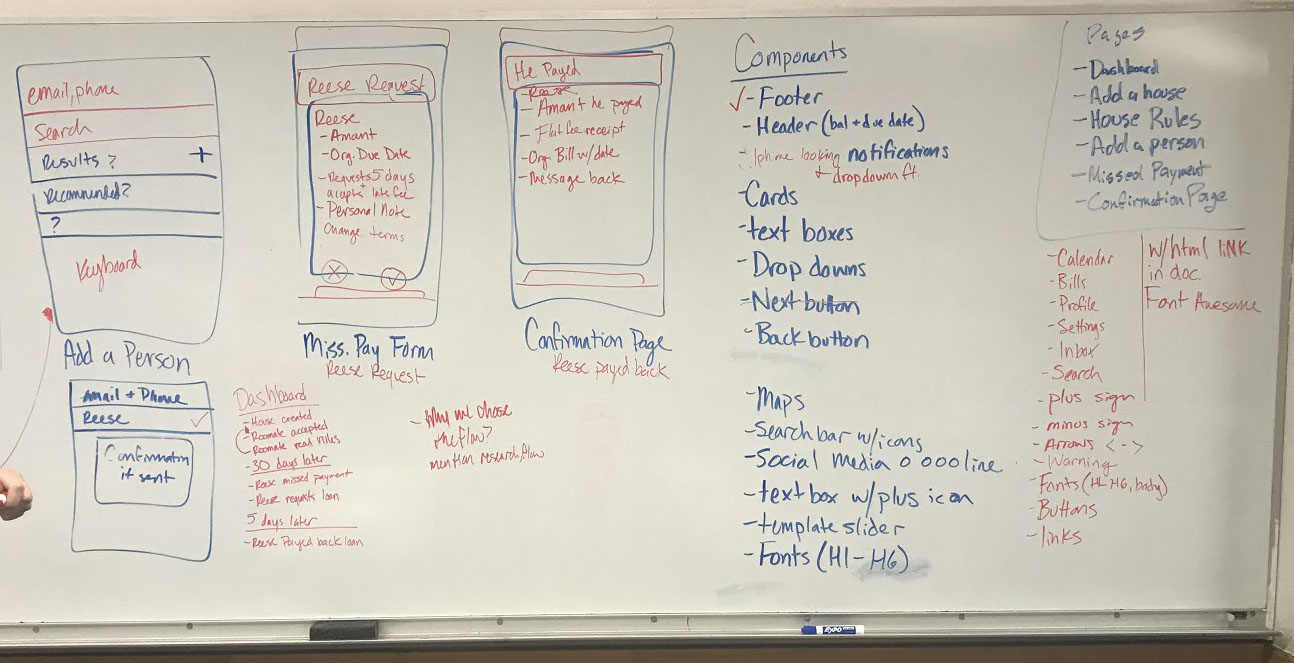 email, phone
Search
Results? +
recommended?
?
Keyboard
Add a Person
email + Phone
Reese ✓
Confirmation
if sent
Reese Request
Reese
- Amant
- Org. Due Date
- Requests 5 days
+
acapts late fee
- Personal Note
Change terms
Miss. Pay Form
Reese Request
He Payed
- Reese
- Amant he payed
- Flat fee receipt
- Org. Bill w/date
- Message back
Confirmation Page
Reese payed back
Dashboard
- House created
- Roomate accepted
- Roomate read rules
- 30 days later
- Reese missed payment
- Reese requests loan
5 days later
- Reese Payed back loan
- Why we chose
the flow?
mention research, flow
Components
✓ - Footer
- Header (bal + due date)
- Iphone looking notifications
+ dropdown ft.
- Cards
- text boxes
- Drop downs
- Next button
- Back button
- Maps
- Search bar w/icons
- Social media o ooo line
- text box w/plus icon
- template slider
- Fonts (H1 - H6)
Pages
- Dashboard
- Add a house
- House Rules
- Add a person
- Missed Payment
- Confirmation Page
- Calendar
- Bills
- Profile
- Settings
- Inbox
- Search
- plus sign
- minus sign
- Arrows < - >
- Warning
- Fonts (H1-H6, body)
- Buttons
- links
w/html link
in doc.
Font Awesome
EXPO